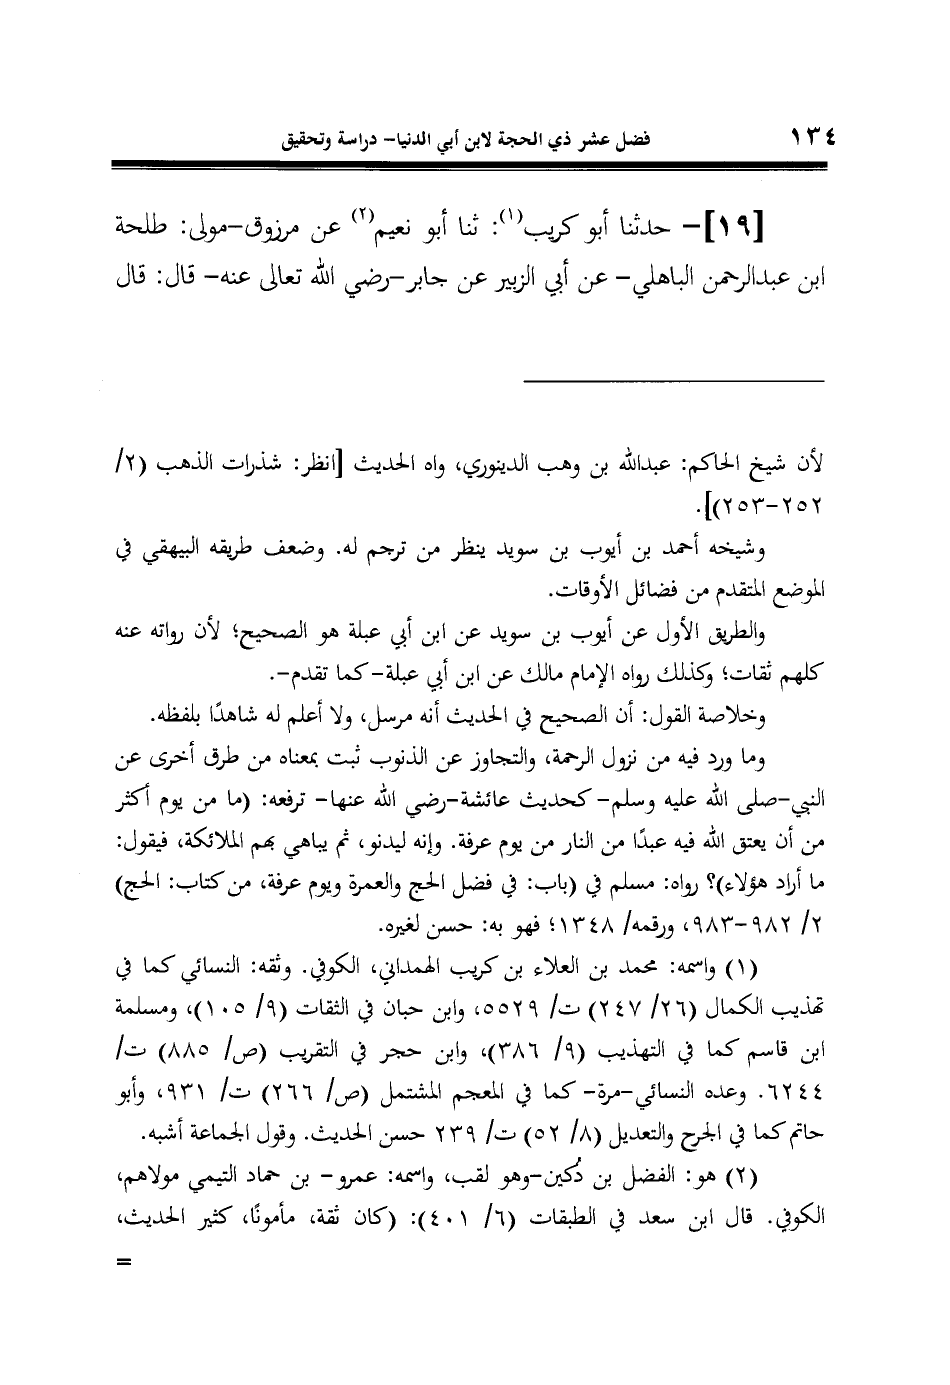 ١٣٤ فضل عشر ذي الحجة لابن أبي الدنيا- دراسة وتحقيق
[١٩]- حدثنا أبو كريب(١): ثنا أبو نعيم(٢) عن مرزوق-مولى: طلحة
ابن عبدالرحمن الباهلي- عن أبي الزبير عن جابر-رضي الله تعالى عنه- قال: قال
لأن شيخ الحاكم: عبدالله بن وهب الدينوري، واه الحديث [انظر: شذرات الذهب (٢/
٢٥٢-٢٥٣)].
وشيخه أحمد بن أيوب بن سويد ينظر من ترجم له. وضعف طريقه البيهقي في
الموضع المتقدم من فضائل الأوقات.
والطريق الأول عن أيوب بن سويد عن ابن أبي عبلة هو الصحيح؛ لأن رواته عنه
كلهم ثقات؛ وكذلك رواه الإمام مالك عن ابن أبي عبلة-كما تقدم-.
وخلاصة القول: أن الصحيح في الحديث أنه مرسل، ولا أعلم له شاهدًا بلفظه.
وما ورد فيه من نزول الرحمة، والتجاوز عن الذنوب ثبت بمعناه من طرق أخرى عن
النبي-صلى الله عليه وسلم- كحديث عائشة-رضي الله عنها- ترفعه: (ما من يوم أكثر
من أن يعتق الله فيه عبدًا من النار من يوم عرفة. وإنه ليدنو، ثم يباهي بهم الملائكة، فيقول:
ما أراد هؤلاء)؟ رواه: مسلم في (باب: في فضل الحج والعمرة ويوم عرفة، من كتاب: الحج)
٢/ ٩٨٢-٩٨٣، ورقمه/ ١٣٤٨؛ فهو به: حسن لغيره.
(١) واسمه: محمد بن العلاء بن كريب الهمداني، الكوفي. وثقه: النسائي كما في
تهذيب الكمال (٢٦/ ٢٤٧) ت/ ٥٥٢٩، وابن حبان في الثقات (٩/ ١٠٥)، ومسلمة
ابن قاسم كما في التهذيب (٩/ ٣٨٦)، وابن حجر في التقريب (ص/ ٨٨٥) ت/
٦٢٤٤. وعده النسائي-مرة- كما في المعجم المشتمل (ص/ ٢٦٦) ت/ ٩٣١، وأبو
حاتم كما في الجرح والتعديل (٨/ ٥٢) ت/ ٢٣٩ حسن الحديث. وقول الجماعة أشبه.
(٢) هو: الفضل بن دُكين-وهو لقب، واسمه: عمرو- بن حماد التيمي مولاهم،
الكوفي. قال ابن سعد في الطبقات (٦/ ٤٠١): (كان ثقة، مأمونًا، كثير الحديث،
=